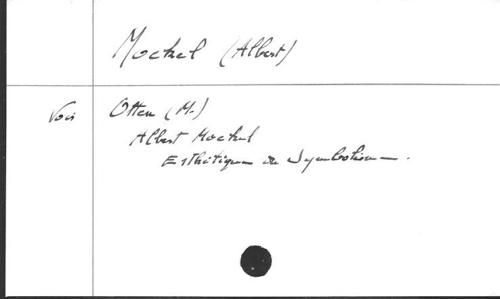 Mockel (Albert)
Voir Otten (M.)
Albert Mockel
Esthétique du Symbolisme.